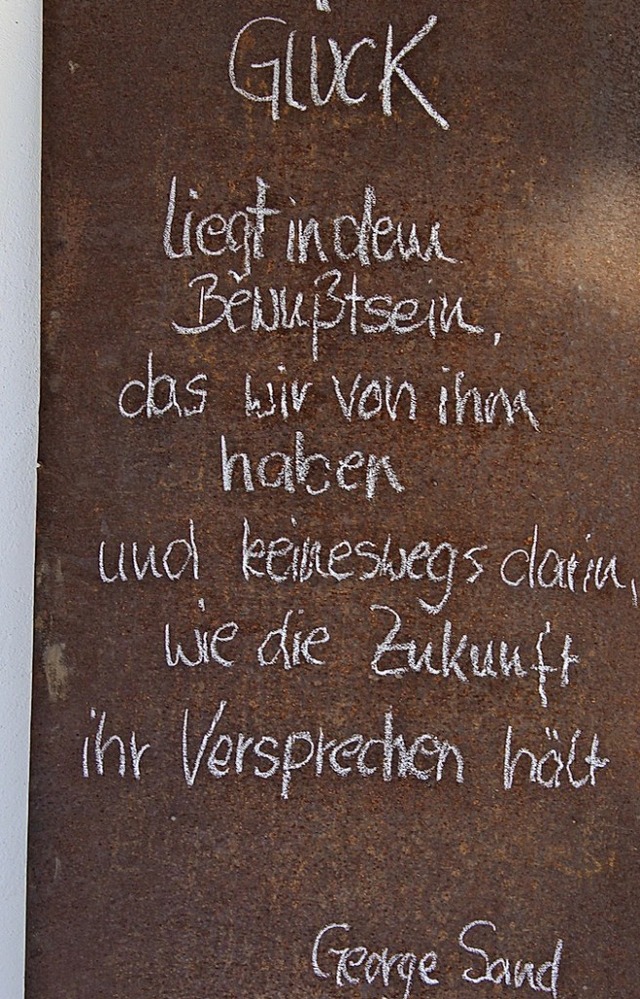 GLÜCK
liegt in dem
Bewußtsein,
das wir von ihm
haben
und keineswegs darin,
wie die Zukunft
ihr Versprechen hält
George Sand